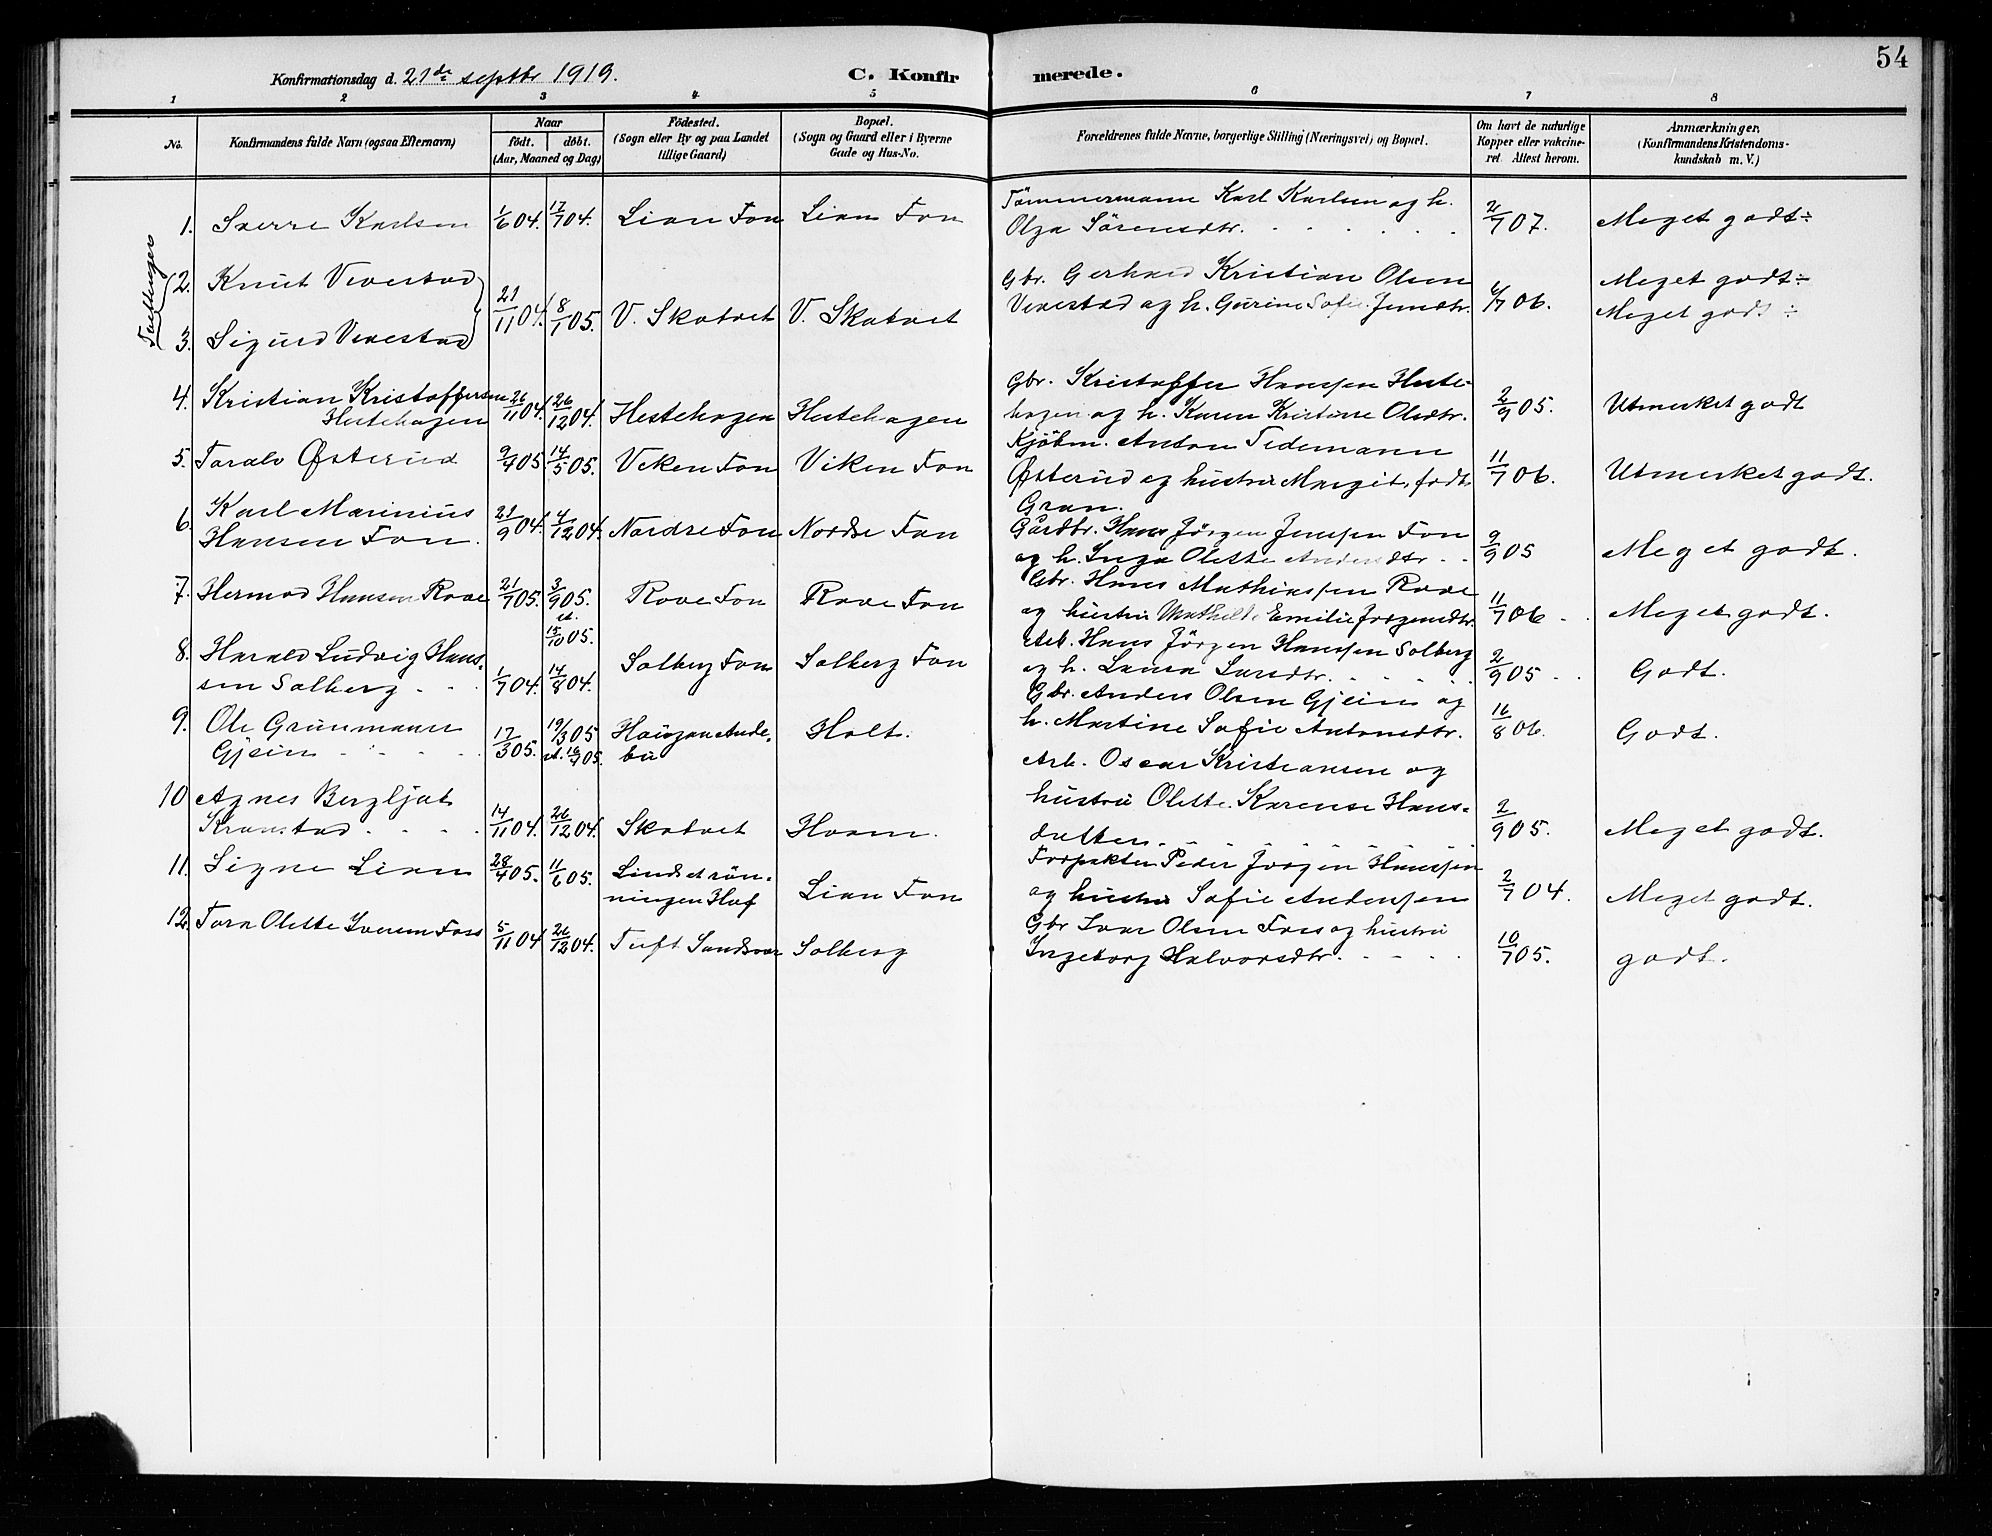 54
Konfirmationsdag d. 21de septbr 1919.
C. Konfir merede.
1 2 3 4 5 6 7 8
No.
Konfirmandens fulde Navn (ogsaa Efternavn)
Naar
födt. döbt.
(Aar, Maaned og Dag)
Födested.
(Sogn eller By og paa Landet
tillige Gaard)
Bopæl.
(Sogn og Gaard eller i Byerne
Gade og Hus-No.
Forældrenes fulde Navne, borgerlige Stilling (Næringsvei) og Bopæl.
Om havt de naturlige
Kopper eller vakcine-
ret Attest herom.
Anmærkninger,
(Konfirmandens Kristendoms-
kundskab m. V.)
1. Sverre Karlsen 1/6 04. 17/7 04. Lian Fon Lian Fon
Tömmermann Karl Karlsen og h.
Olga Sörensdtr. 2/7 07. Meget godt÷
Tvillinger
2. Knut Vivestad
3. Sigurd Vivestad
21/11 04. 8/1 05. V. Skatvet V. Skatvet
Gbr. Gerhard Kristian Olsen
Vivestad og h. Gurine Sofie Jensdtr. 6/7 06.
Meget godt÷
Meget godt ÷
4. Kristian Kristoffersen
Hestehagen 26/11 04. 26/12 04. Hestehagen Hestehagen
Gbr. Kristoffer Hanssen Heste-
hagen og h. Karen Kristine Olsdtr. 2/9 05. Utmerket godt
5. Taralv Østerud 9/4 05 14/5 05. Viken Fon Viken Fon
Kjöbm. Anton Tidemann
Østerud og hustru Margit, födt
Gran. 11/7 06. Utmerket godt.
6. Karl Marinius
Hansen Fon. 21/9 04. 4/12 04. Nordre Fon Nordre Fon
Gårdbr. Hans Jörgen Jenssen Fon
og h. Inga Olette Andersdtr. 9/9 05 Meget godt.
7. Hermod Hansen Rove 21/7 05. 3/9 05. Rove Fon Rove Fon
st. 15/10 05.
Gbr. Hans Mathiassen Rove
og hustru Mathilde Emilie Jörgensdtr. 11/7 06 Meget godt.
8. Harald Ludvig Hans-
sen Solberg 1/7 04. 14/8 04. Solberg Fon Solberg Fon
Arb. Hans Jörgen Hanssen Solberg
og h. Laura Larsdtr. 2/9 05 Godt.
9. Ole Grünmann
Gjein 17/3 05. 19/3 05 Haugan Ande-
bu Holt.
st. 16/7 05.
Gbr. Anders Olsen Gjein og
h. Martine Sofie Antonsdtr. 16/8 06. Godt.
10 Agnes Bergljot
Kranstad 14/11 04. 26/12 04. Skatvet Hvam.
Arb. Oscar Kristiansen og
hustru Olette Karense Hans-
datter. 2/9 05. Meget godt.
11. Signe Lian 28/4 05. 11/6 05. Lindsetrön-
ningen Hof Lian Fon
Forpakter Peder Jörgen Hanssen
og hustru Sofie Anderssen 2/7 04. Meget godt.
12. Tora Olette Iversen Foss 5/11 04 26/12 04. Tuft Sandsvær Solberg
Gbr Ivar Olsen Foss og hustru
Ingeborg Halvorsdtr. 10/7 05. godt.